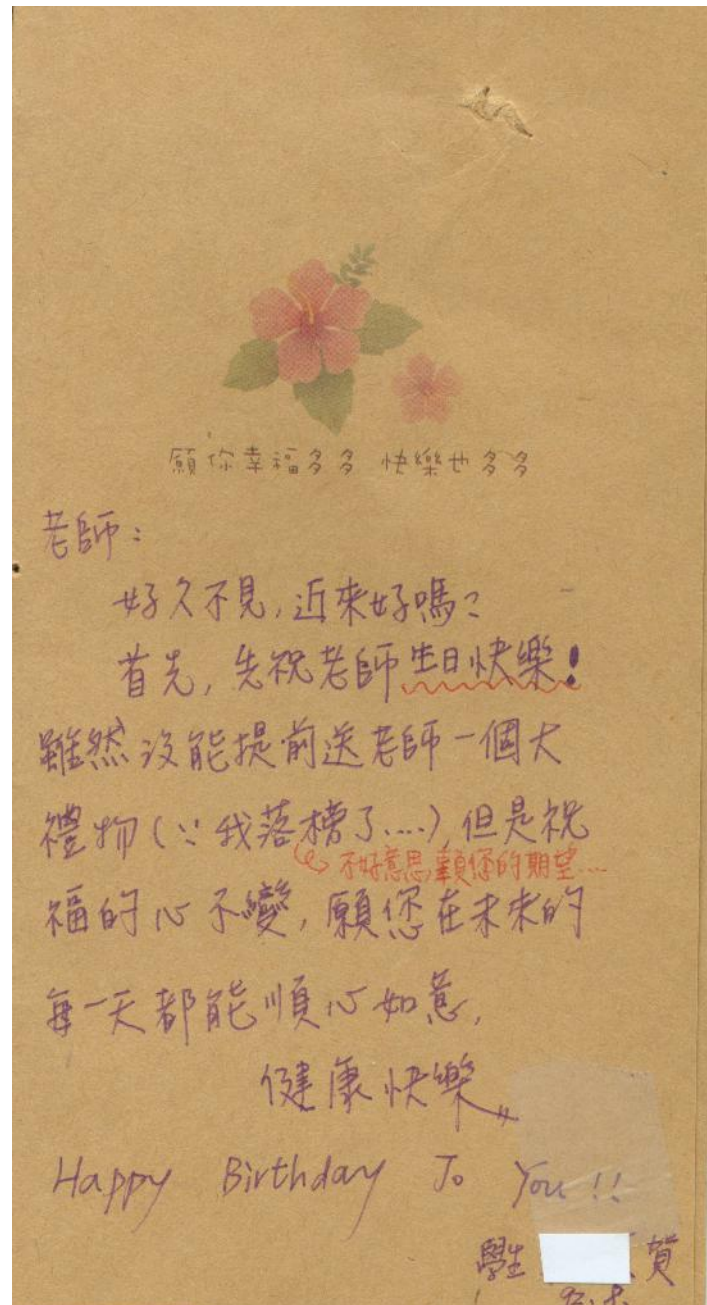 願你幸福多多 快樂也多多
老師:
好久不見,近來好嗎?
首先,先祝老師生日快樂!
雖然沒能提前送老師一個大
禮物(∵我落榜了....),但是祝
不好意思,辜負您的期望...
福的心不變,願您在未來的
每一天都能順心如意,
健康快樂。
Happy Birthday To You!!
學生 賀